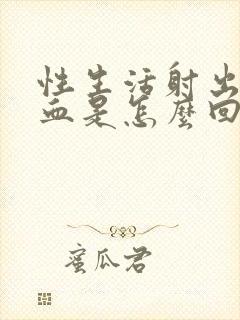 性生活射出
血是怎麼回
蜜瓜君